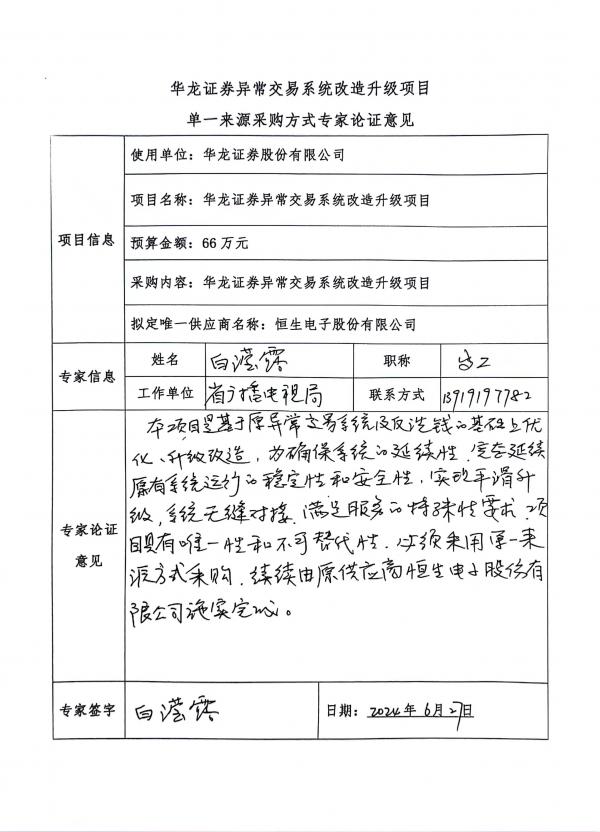 华龙证券异常交易系统改造升级项目
单一来源采购方式专家论证意见
项目信息
使用单位：华龙证券股份有限公司
项目名称：华龙证券异常交易系统改造升级项目
预算金额：66万元
采购内容：华龙证券异常交易系统改造升级项目
拟定唯一供应商名称：恒生电子股份有限公司
专家信息
姓名 白滢露 职称 高工
工作单位 省广播电视局 联系方式 13919197782
专家论证
意见
本项目是基于原异常交易系统及反洗钱的基础上优
化、升级改造，为确保系统的延续性，延续
原有系统运行的稳定性和安全性，实现平滑升
级，系统无缝对接，满足服务的特殊性要求，项
目具有唯一性和不可替代性，必须采用单一来
源方式采购，续续由原供应商恒生电子股份有
限公司施实完成。
专家签字 白滢露 日期：2024年6月27日